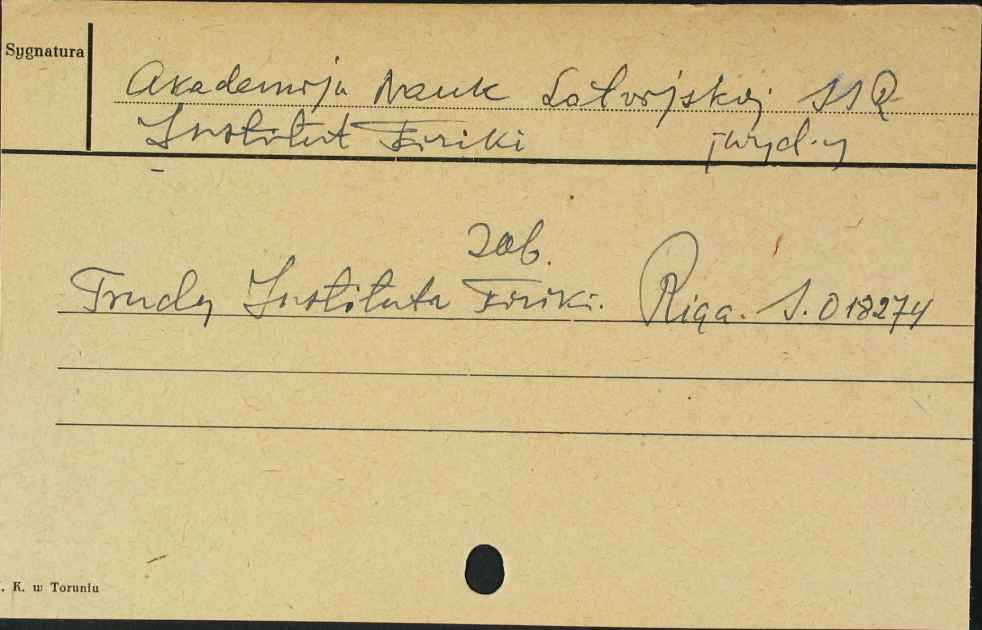 Sygnatura
Akademija Nauk Latvijskoj SSR
Institut Fiziki
Zob.
Trudy Instituta Fiziki. Riga. S. 018274
. K. w Toruniu